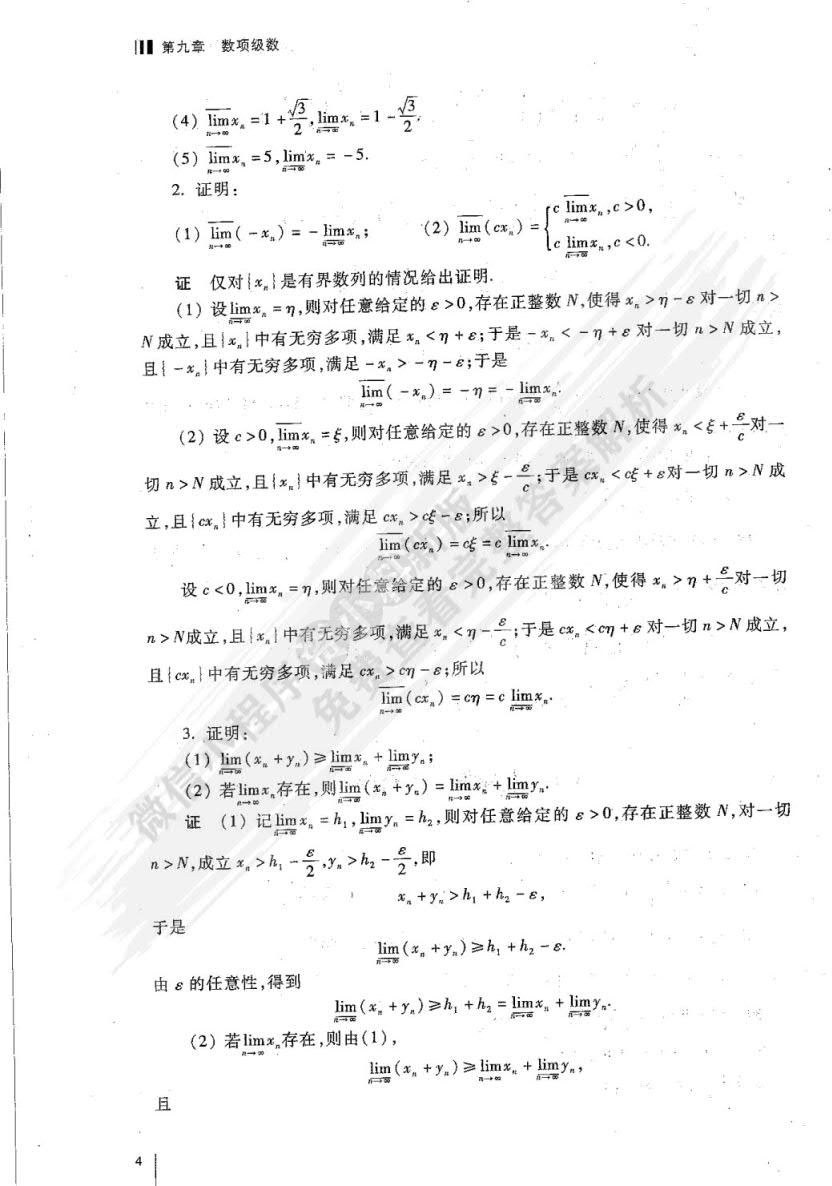 第九章 数项级数
(4) $\overline{\lim\limits_{n\to\infty}}x_n=1+\frac{\sqrt{3}}{2},\underline{\lim\limits_{n\to\infty}}x_n=1-\frac{\sqrt{3}}{2}$.
(5) $\overline{\lim\limits_{n\to\infty}}x_n=5,\underline{\lim\limits_{n\to\infty}}x_n=-5.$
2. 证明:
(1) $\overline{\lim\limits_{n\to\infty}}(-x_n)=-\underline{\lim\limits_{n\to\infty}}x_n$; (2) $\overline{\lim\limits_{n\to\infty}}(cx_n)=\begin{cases}c\,\overline{\lim\limits_{n\to\infty}}x_n,c>0,\\c\,\underline{\lim\limits_{n\to\infty}}x_n,c<0.\end{cases}$
证 仅对{$x_n$}是有界数列的情况给出证明.
(1) 设$\underline{\lim\limits_{n\to\infty}}x_n=\eta$,则对任意给定的 $\varepsilon>0$,存在正整数 $N$,使得 $x_n>\eta-\varepsilon$ 对一切 $n>$
$N$ 成立,且{$x_n$}中有无穷多项,满足 $x_n<\eta+\varepsilon$;于是 $-x_n<-\eta+\varepsilon$ 对一切 $n>N$ 成立,
且{$-x_n$}中有无穷多项,满足 $-x_n>-\eta-\varepsilon$;于是
$\overline{\lim\limits_{n\to\infty}}(-x_n)=-\eta=-\underline{\lim\limits_{n\to\infty}}x_n.$
(2) 设 $c>0,\overline{\lim\limits_{n\to\infty}}x_n=\xi$,则对任意给定的 $\varepsilon>0$,存在正整数 $N$,使得 $x_n<\xi+\frac{\varepsilon}{c}$对一
切 $n>N$ 成立,且{$x_n$}中有无穷多项,满足 $x_n>\xi-\frac{\varepsilon}{c}$;于是 $cx_n<c\xi+\varepsilon$对一切 $n>N$ 成
立,且{$cx_n$}中有无穷多项,满足 $cx_n>c\xi-\varepsilon$;所以
$\overline{\lim\limits_{n\to\infty}}(cx_n)=c\xi=c\,\overline{\lim\limits_{n\to\infty}}x_n.$
设 $c<0,\underline{\lim\limits_{n\to\infty}}x_n=\eta$,则对任意给定的 $\varepsilon>0$,存在正整数 $N$,使得 $x_n>\eta+\frac{\varepsilon}{c}$对一切
$n>N$成立,且{$x_n$}中有无穷多项,满足 $x_n<\eta-\frac{\varepsilon}{c}$;于是 $cx_n<c\eta+\varepsilon$ 对一切 $n>N$ 成立,
且{$cx_n$}中有无穷多项,满足 $cx_n>c\eta-\varepsilon$;所以
$\overline{\lim\limits_{n\to\infty}}(cx_n)=c\eta=c\,\underline{\lim\limits_{n\to\infty}}x_n.$
3. 证明:
(1) $\underline{\lim\limits_{n\to\infty}}(x_n+y_n)\geq\underline{\lim\limits_{n\to\infty}}x_n+\underline{\lim\limits_{n\to\infty}}y_n$;
(2) 若$\lim\limits_{n\to\infty}x_n$存在,则$\underline{\lim\limits_{n\to\infty}}(x_n+y_n)=\lim\limits_{n\to\infty}x_n+\underline{\lim\limits_{n\to\infty}}y_n.$
证 (1) 记$\underline{\lim\limits_{n\to\infty}}x_n=h_1,\underline{\lim\limits_{n\to\infty}}y_n=h_2$,则对任意给定的 $\varepsilon>0$,存在正整数 $N$,对一切
$n>N$,成立 $x_n>h_1-\frac{\varepsilon}{2},y_n>h_2-\frac{\varepsilon}{2}$,即
$x_n+y_n>h_1+h_2-\varepsilon,$
于是
$\underline{\lim\limits_{n\to\infty}}(x_n+y_n)\geq h_1+h_2-\varepsilon.$
由 $\varepsilon$ 的任意性,得到
$\underline{\lim\limits_{n\to\infty}}(x_n+y_n)\geq h_1+h_2=\underline{\lim\limits_{n\to\infty}}x_n+\underline{\lim\limits_{n\to\infty}}y_n.$
(2) 若$\lim\limits_{n\to\infty}x_n$存在,则由(1),
$\underline{\lim\limits_{n\to\infty}}(x_n+y_n)\geq\lim\limits_{n\to\infty}x_n+\underline{\lim\limits_{n\to\infty}}y_n,$
且
4